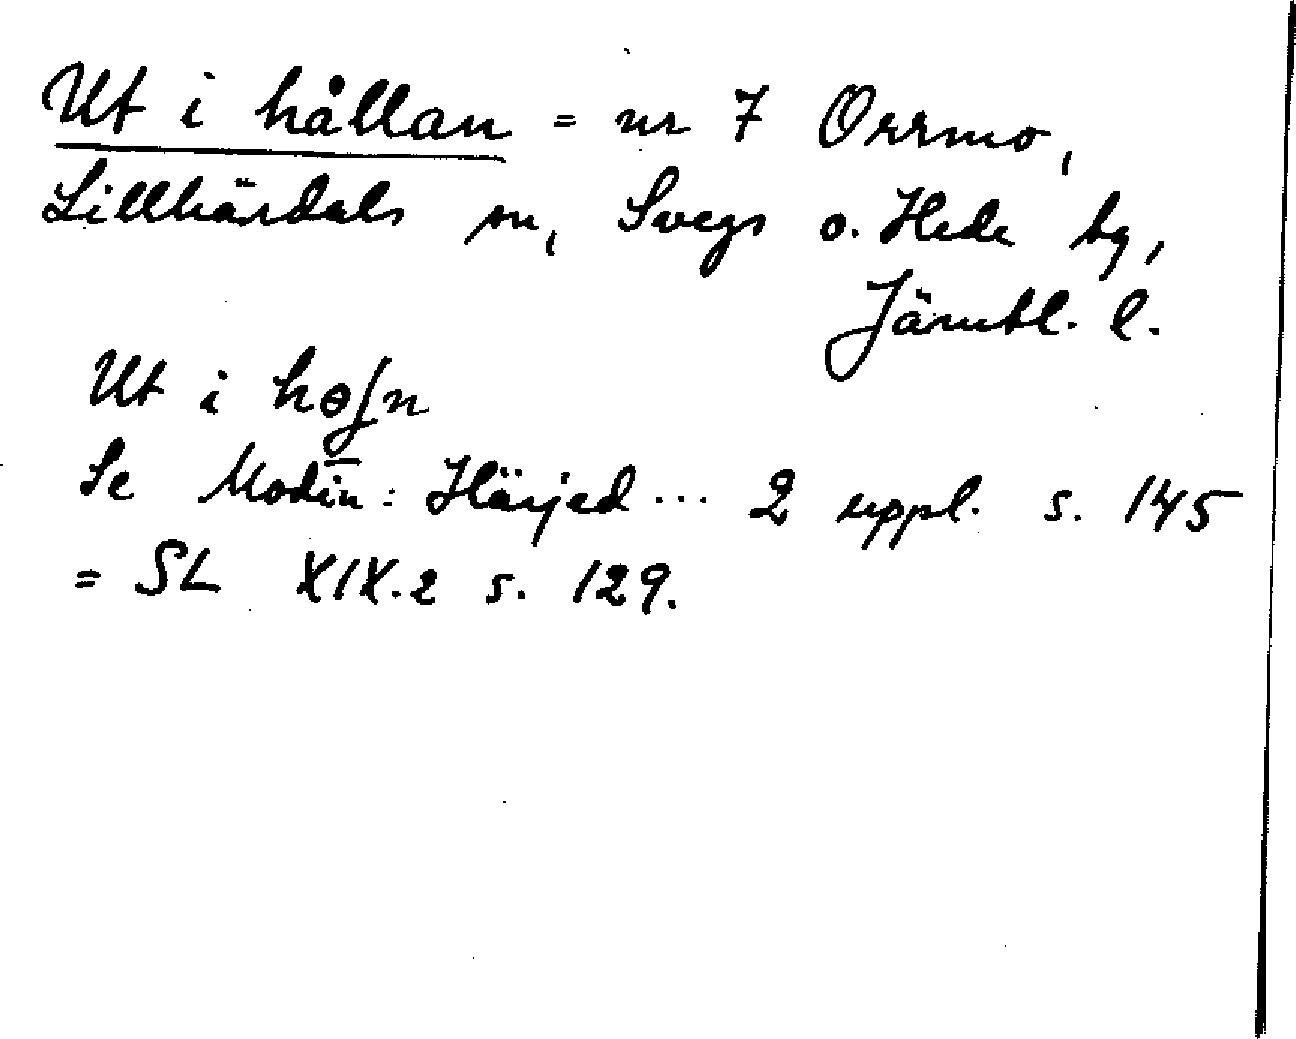 Ut i hållan = nr 7 Orrmo,
Lillhärdals sn, Svegs o. Hede tg,
Jämtl. l.
Ut i hɵʃn
Se Modin: Härjed... 2 uppl. s. 145
= SL XIX.2 s. 129.